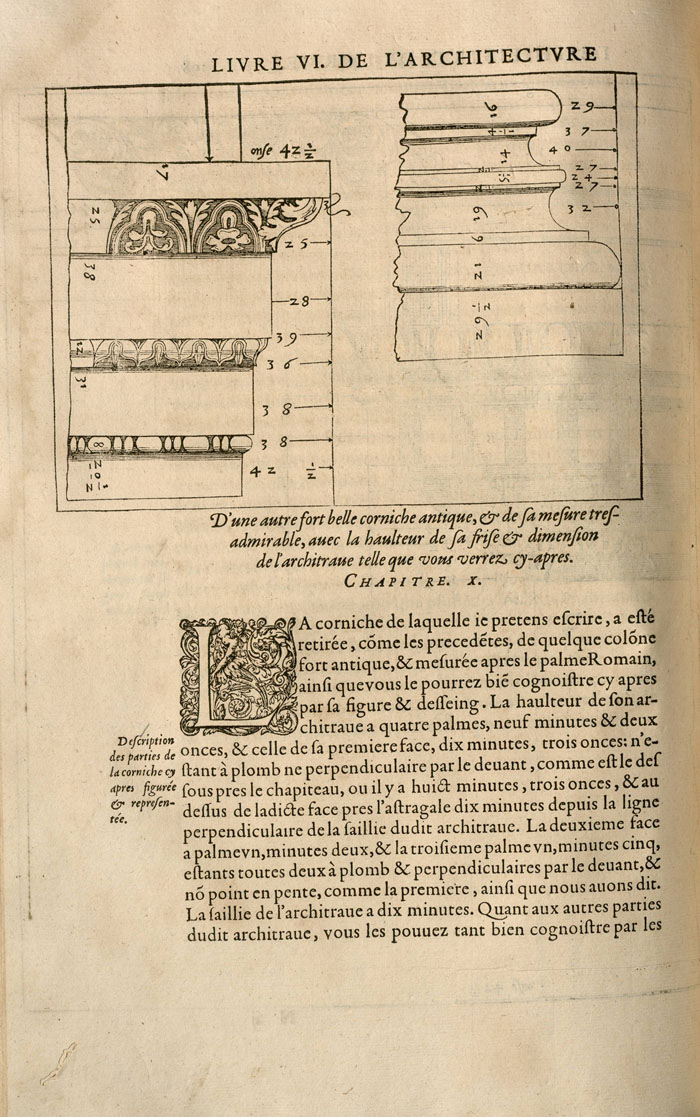 LIVRE VI. DE L'ARCHITECTVRE
onse 42 1/2
17
25
3
25
38
28
39
12
36
31
38
8
38
42 1/2
16
29
37
14
40
27
24
27
19
32
9
12
D'une autre fort belle corniche antique, & de sa mesure tres-
admirable, auec la haulteur de sa frise & dimension
de l'architraue telle que vous verrez cy-apres.
CHAPITRE. X.
LA corniche de laquelle ie pretens escrire, a esté
retirée, cõme les precedẽtes, de quelque colõne
fort antique, & mesurée apres le palme Romain,
ainsi que vous le pourrez biẽ cognoistre cy apres
par sa figure & desseing. La haulteur de son ar-
chitraue a quatre palmes, neuf minutes & deux
onces, & celle de sa premiere face, dix minutes, trois onces: n'e-
stant à plomb ne perpendiculaire par le deuant, comme est le des
sous pres le chapiteau, ou il y a huict minutes, trois onces, & au
dessus de ladicte face pres l'astragale dix minutes depuis la ligne
perpendiculaire de la saillie dudit architraue. La deuxieme face
a palme vn, minutes deux, & la troisieme palme vn, minutes cinq,
estants toutes deux à plomb & perpendiculaires par le deuant, &
nõ point en pente, comme la premiere, ainsi que nous auons dit.
La saillie de l'architraue a dix minutes. Quant aux autres parties
dudit architraue, vous les pouuez tant bien cognoistre par les
Description
des parties de
la corniche cy
apres figurée
& represen-
tée.